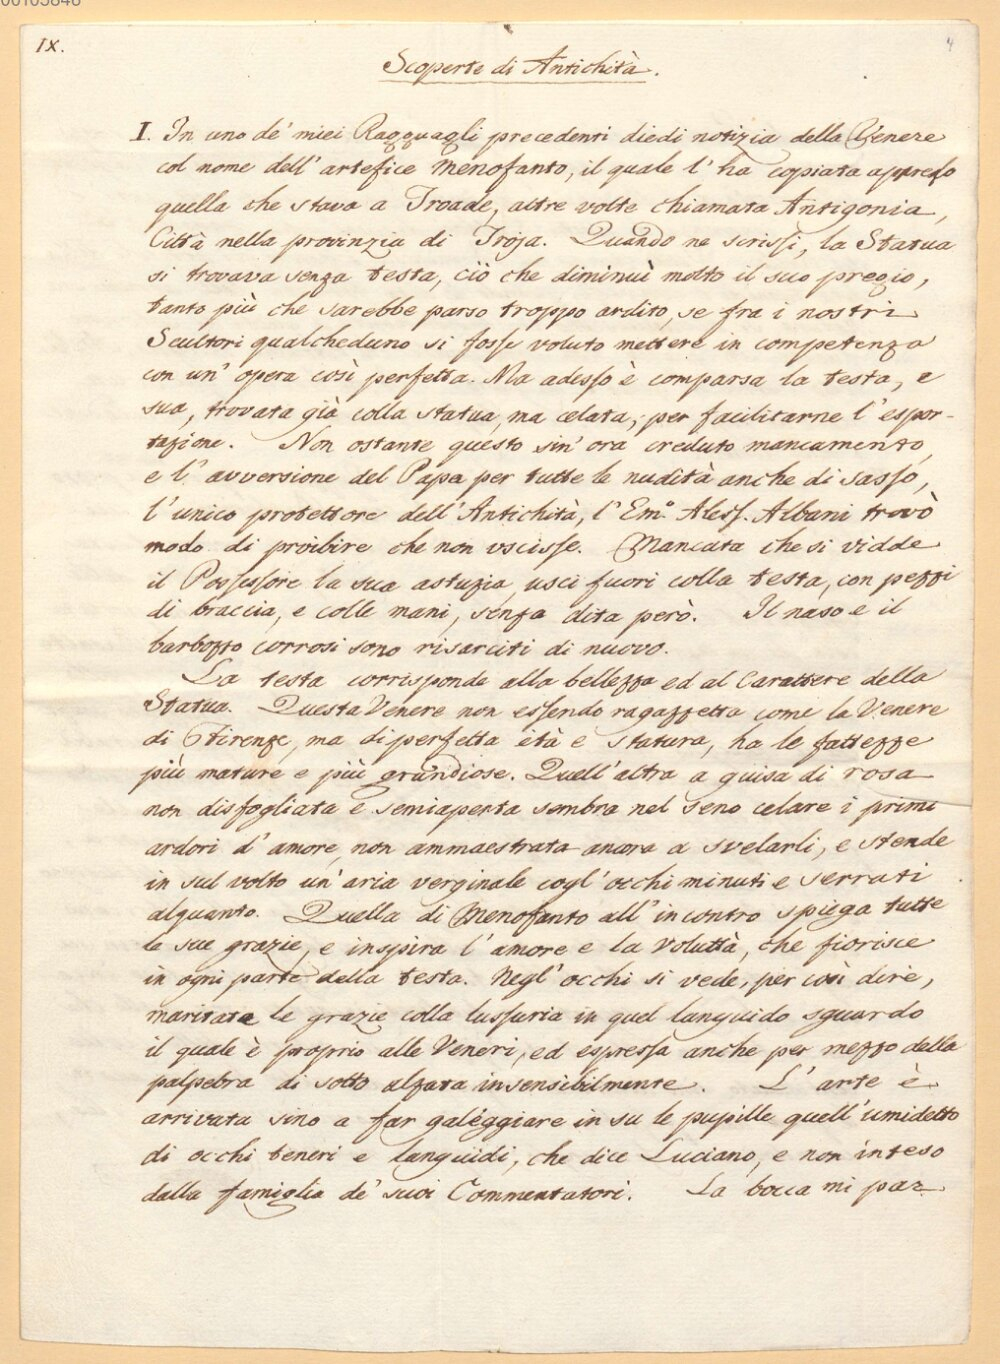 00105846
IX.
4
Scoperte di Antichità.
I. In uno de' miei Ragguagli precedenti diedi notizia della Venere
col nome dell' artefice Menofanto, il quale l' ha copiata appresso
quella che stava a Troade, altre volte chiamata Antigonia,
Città nella provinzia di Troja. Quando ne scrissi, la Statua
si trovava senza testa, ciò che diminuì molto il suo pregio,
tanto più che sarebbe parso troppo ardito, se fra i nostri
Scultori qualcheduno si fosse voluto mettere in competenza
con un' opera così perfetta. Ma adesso è comparsa la testa, e
sua, trovata già colla statua, ma celata, per facilitarne l' espor-
tazione. Non ostante questo sin' ora creduto mancamento,
e l' avversione del Papa per tutte le nudità anche di sasso,
l' unico protettore dell' Antichità, l' Emo. Aless. Albani trovò
modo di proibire che non uscisse. Mancata che si vidde
il Possessore la sua astuzia, uscì fuori colla testa, con pezzi
di braccia, e colle mani, senza dita però. Il naso e il
barbozzo corrosi sono risarciti di nuovo.
La testa corrisponde alla bellezza ed al Carattere della
Statua. Questa Venere non essendo ragazzetta come la Venere
di Firenze, ma di perfetta età e statura, ha le fattezze
più mature e più grandiose. Quell' altra a guisa di rosa
non disfogliata e semiaperta sembra nel seno celare i primi
ardori d' amore, non ammaestrata ancora a svelarli, e stende
in sul volto un' aria verginale cogl' occhi minuti e serrati
alquanto. Quella di Menofanto all' incontro spiega tutte
le sue grazie, e inspira l' amore e la voluttà, che fiorisce
in ogni parte della testa. Negl' occhi si vede, per così dire,
maritate le grazie colla lussuria in quel languido sguardo
il quale è proprio alle Veneri, ed espressa anche per mezzo della
palpebra di sotto alzata insensibilmente. L' arte è
arrivata sino a far galeggiare in su le pupille quell' umidetto
di occhi teneri e languidi, che dice Luciano, e non inteso
dalla famiglia de' suoi Commentatori. La bocca mi par